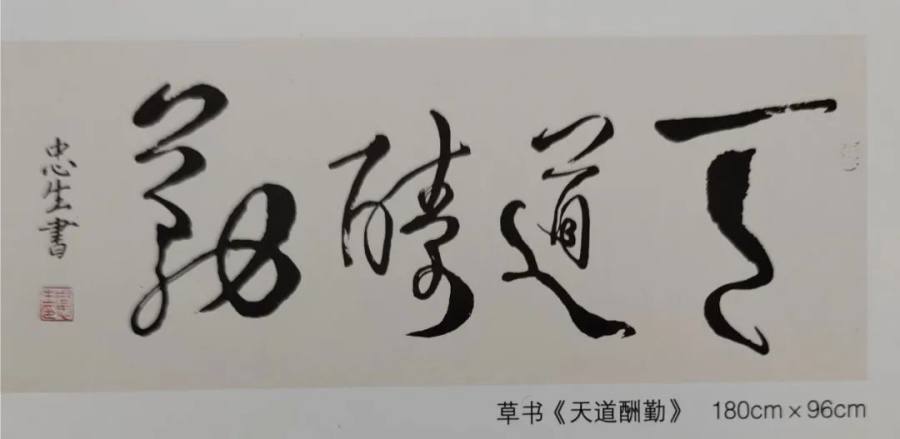 天道酬勤
忠生書
草书《天道酬勤》 180cm×96cm